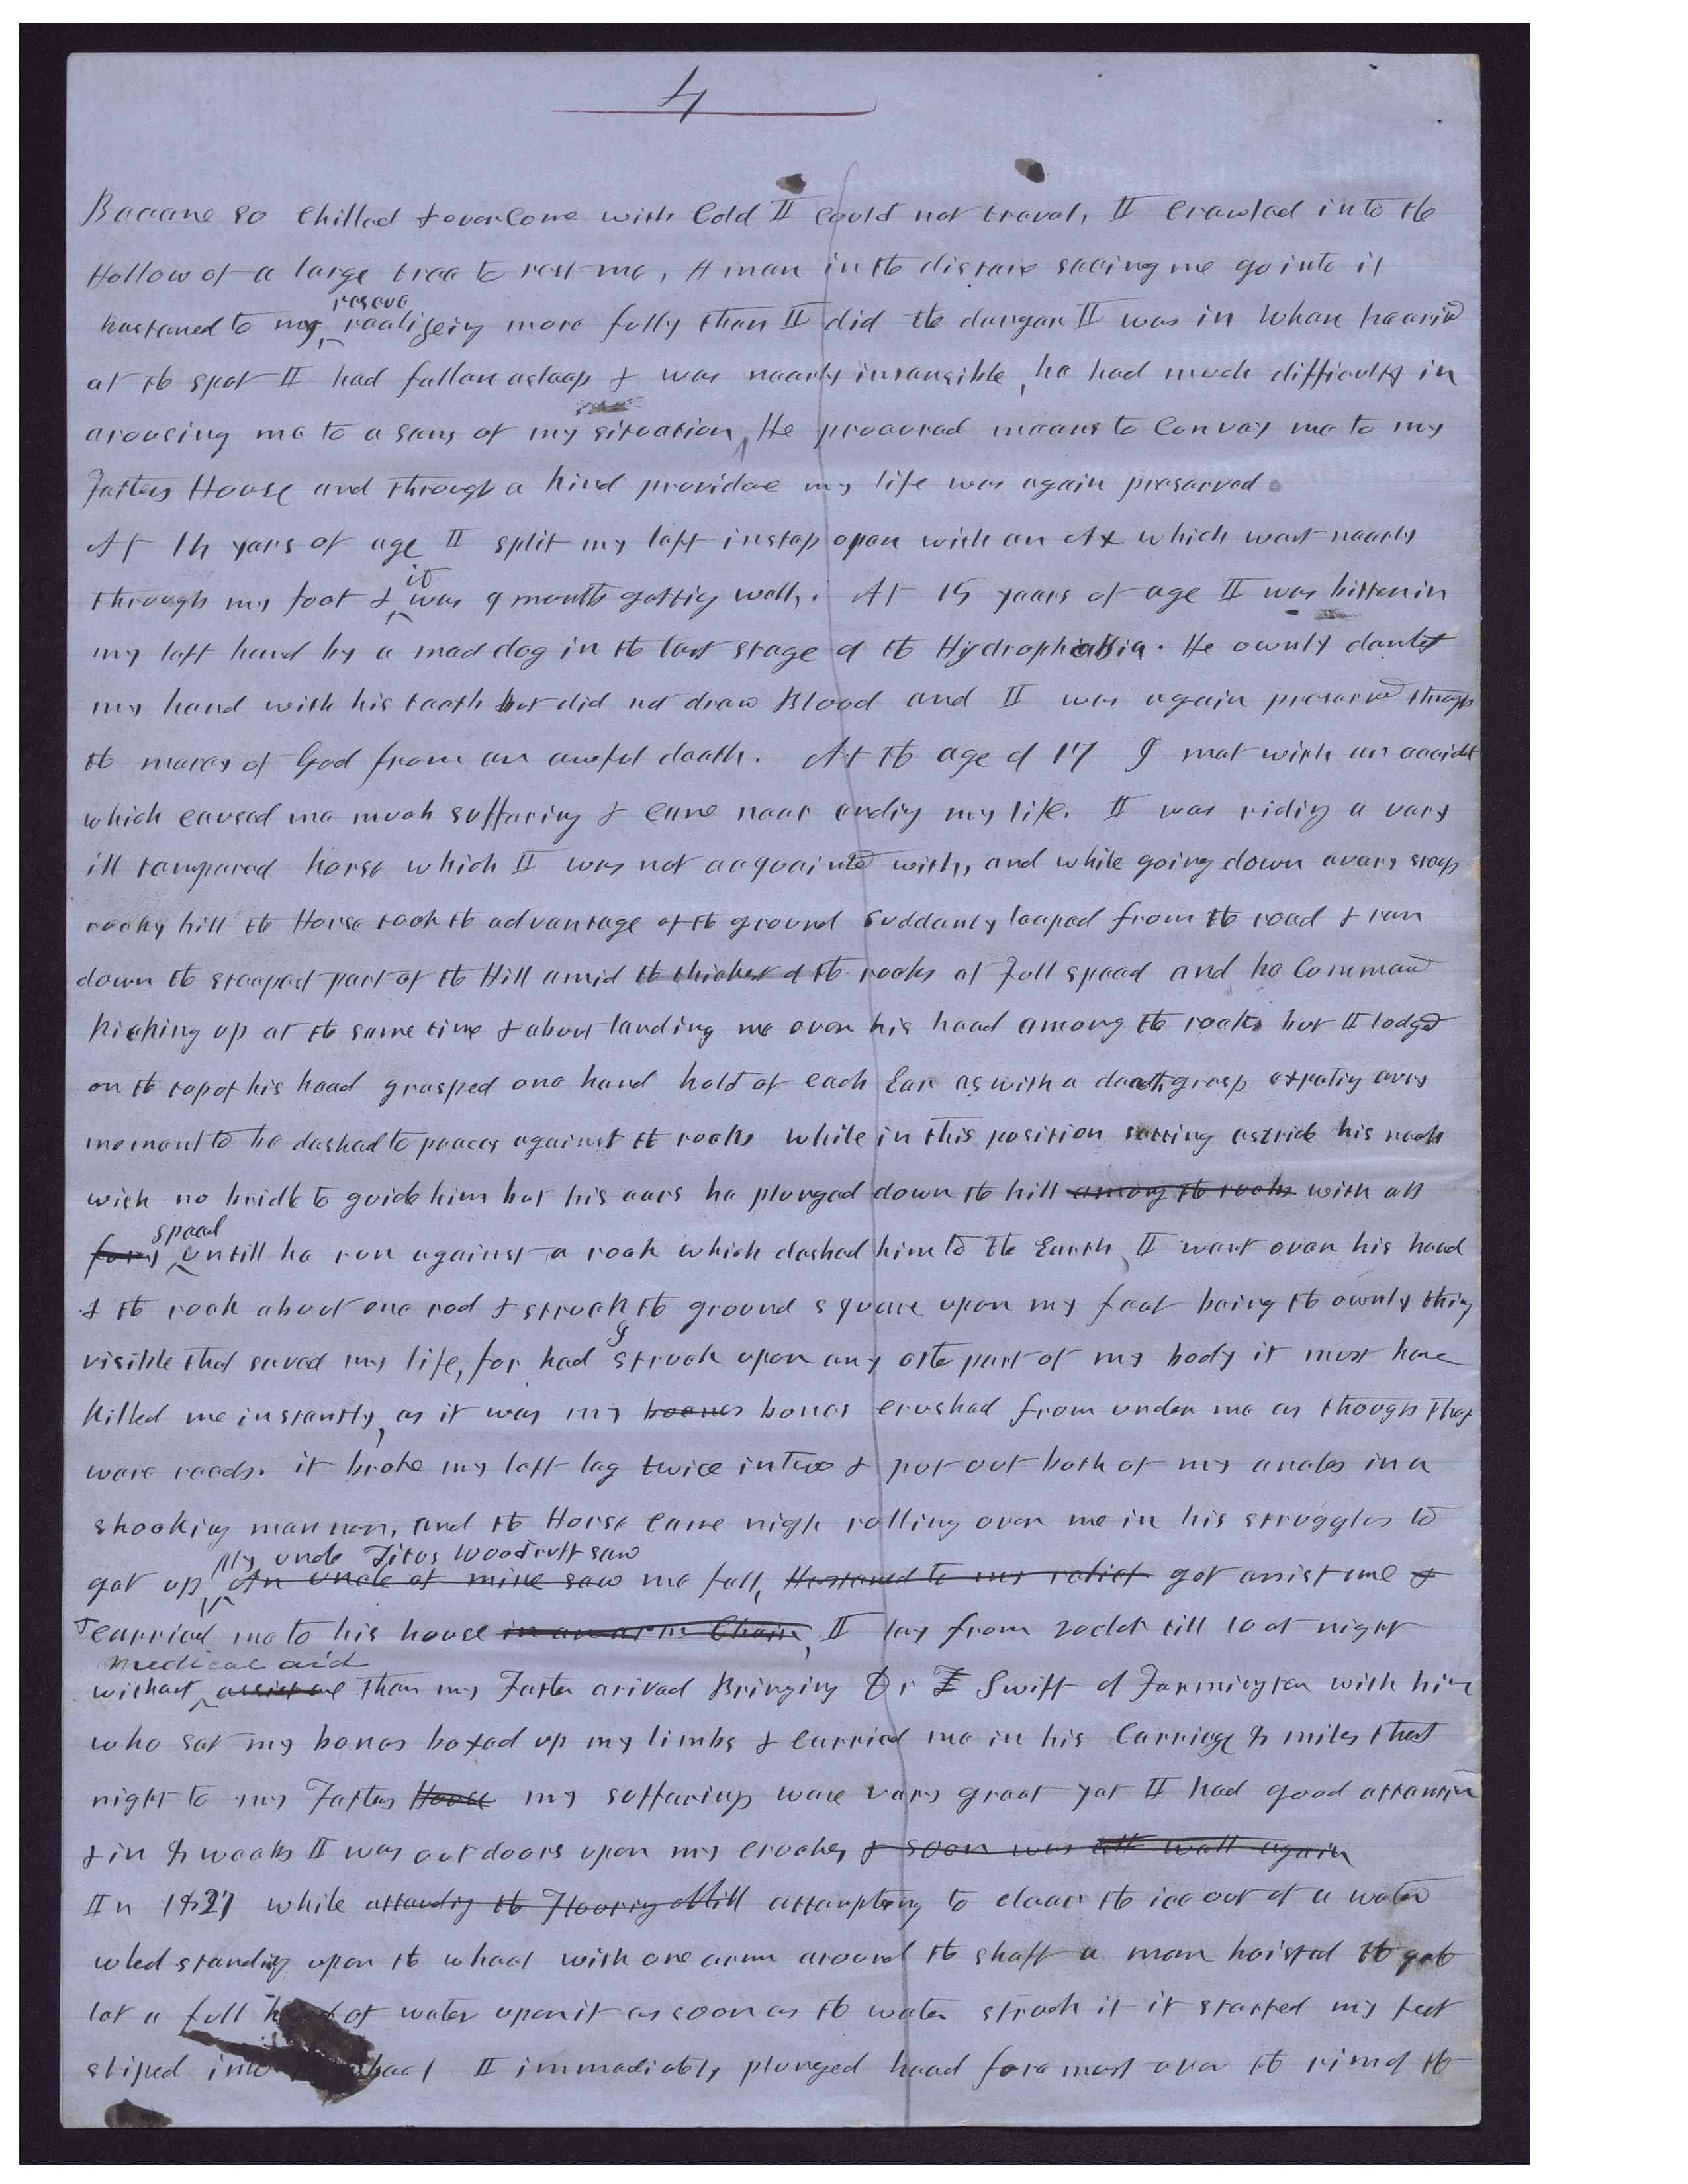 4
Became so chilled & overcome with Cold I could not travel, I Crawled into the
Hollow of a large tree to rest me, A man in the distance seeing me go into it
hastened to my rescue realizeing more fully than I did the danger I was in When he arived
at the spot I had fallen asleep & was nearly insensible, he had much difficulty in
arousing me to a sens of my situation, He procured means to Convey me to my
Fathers House and through a kind providace my life was again preserved
At 14 years of age I split my left instep open with an Ax which went nearly
through my foot & it was 9 months getting well,. At 15 years of age I was bitten in
my left hand by a mad dog in the last stage of the Hydrophobia. He ownly dented
my hand with his teeth but did not draw Blood and I was again preserved through
the mercy of God from an awful death. At the age of 17 I met with an accident
which caused me much suffering & came near ending my life. I was riding a very
ill tempered horse which I was not acquainted with, and while going down a very steep
rocky hill the Horse took the advantage of the ground suddenly leaped from the road & run
down the steepest part of the Hill amid the thickest of the rocks at full speed and he Commenced
kicking up at the same time & about landing me over his head among the rocks but I lodged
on the top of his head grasped one hand hold of each Ear as with a death grasp expecting every
moment to be dashed to peaces against the rocks while in this position setting astride his neck
with no bridle to guide him but his ears he plunged down the hill among the rocks with all
fury speed untill he run against a rock which dashed him to the Earth, I went over his head
& the rock about one rod & struck the ground square upon my feet being the ownly thing
visible that saved my life, for had I struck upon any other part of my body it must have
killed me instantly, as it was my boanes bones crushed from under me as though they
were reeds. it broke my left leg twice in two & put out both of my ancles in a
shocking manner, and the Horse came nigh rolling over me in his struggles to
get up, My uncle Titus Woodruff saw An uncle of mine saw me fall, Hastened to my relief got assistance &
& carried me to his house in an arm Chair, I lay from 2 oclok till 10 at night
without Medical aid assistance then my Father arived Bringing Dr Swift of Farmington with him
who set my bones boxed up my limbs & carried me in his Carriage 8 miles that
night to my Fathers House my sufferings were very great yet I had good attention
& in 8 weeks I was out doors upon my cruches, & soon was all well again
In 1827 while attending the Flouring Mill attempting to clear the ice out of a water
wheel standing upon the wheel with one arm around the shaft a man hoisted the gate
let a full head of water upon it as soon as the water struck it it started my feet
sliped into wheel I immediately plunged head foremost over the rim of the